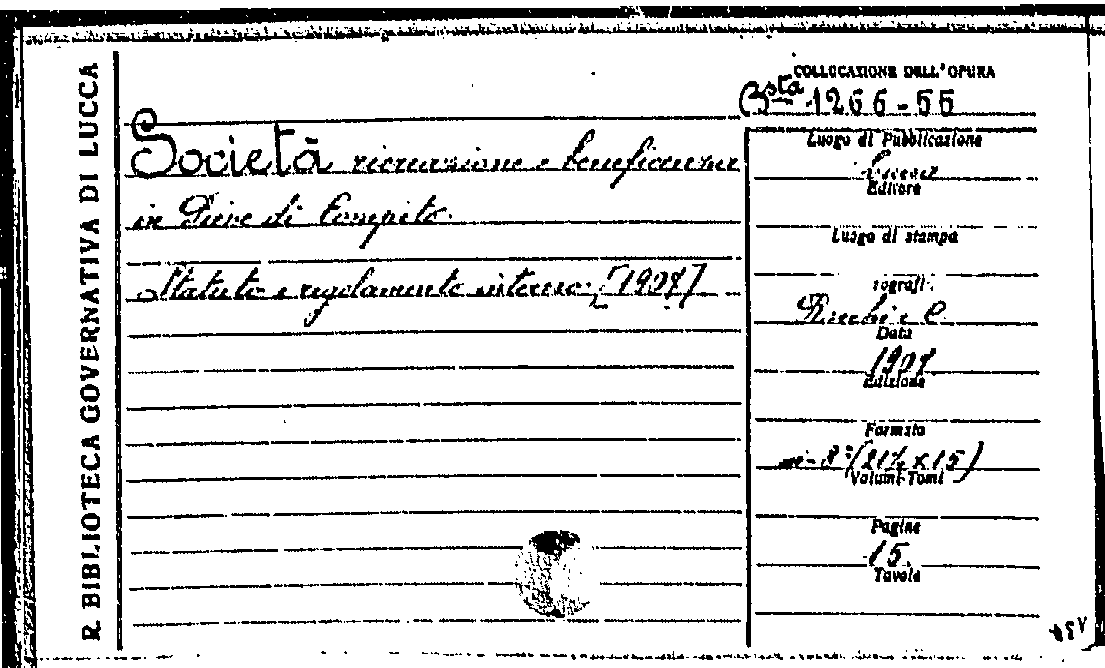 R. BIBLIOTECA GOVERNATIVA DI LUCCA
COLLOCAZIONE DELL'OPERA
Bsta 1266-55
Società ricreazione e beneficenza
in Pieve di Compito.
Statuto e regolamento interno. [1907]
Luogo di Pubblicazione
Lucca
Editore
Luogo di stampa
Data
1907
Edizione
Formato
in-8° (21½ x 15)
Volumi-Tomi
Pagine
15
Tavole